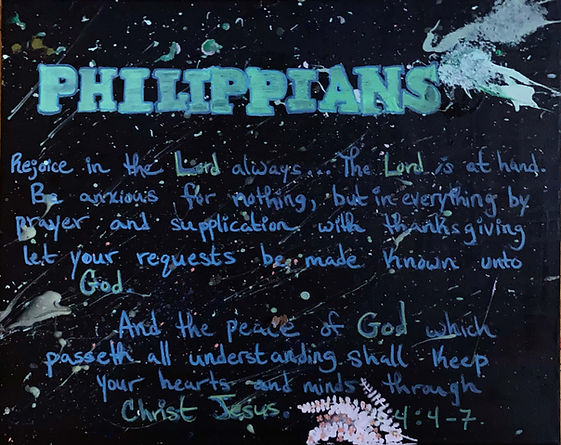 PHILIPPIANS
Rejoice in the Lord always... The Lord is at hand.
Be anxious for nothing, but in everything by
prayer and supplication with thanksgiving
let your requests be made known unto
God.
And the peace of God which
passeth all understanding shall keep
your hearts and minds through
Christ Jesus. 4:4-7.